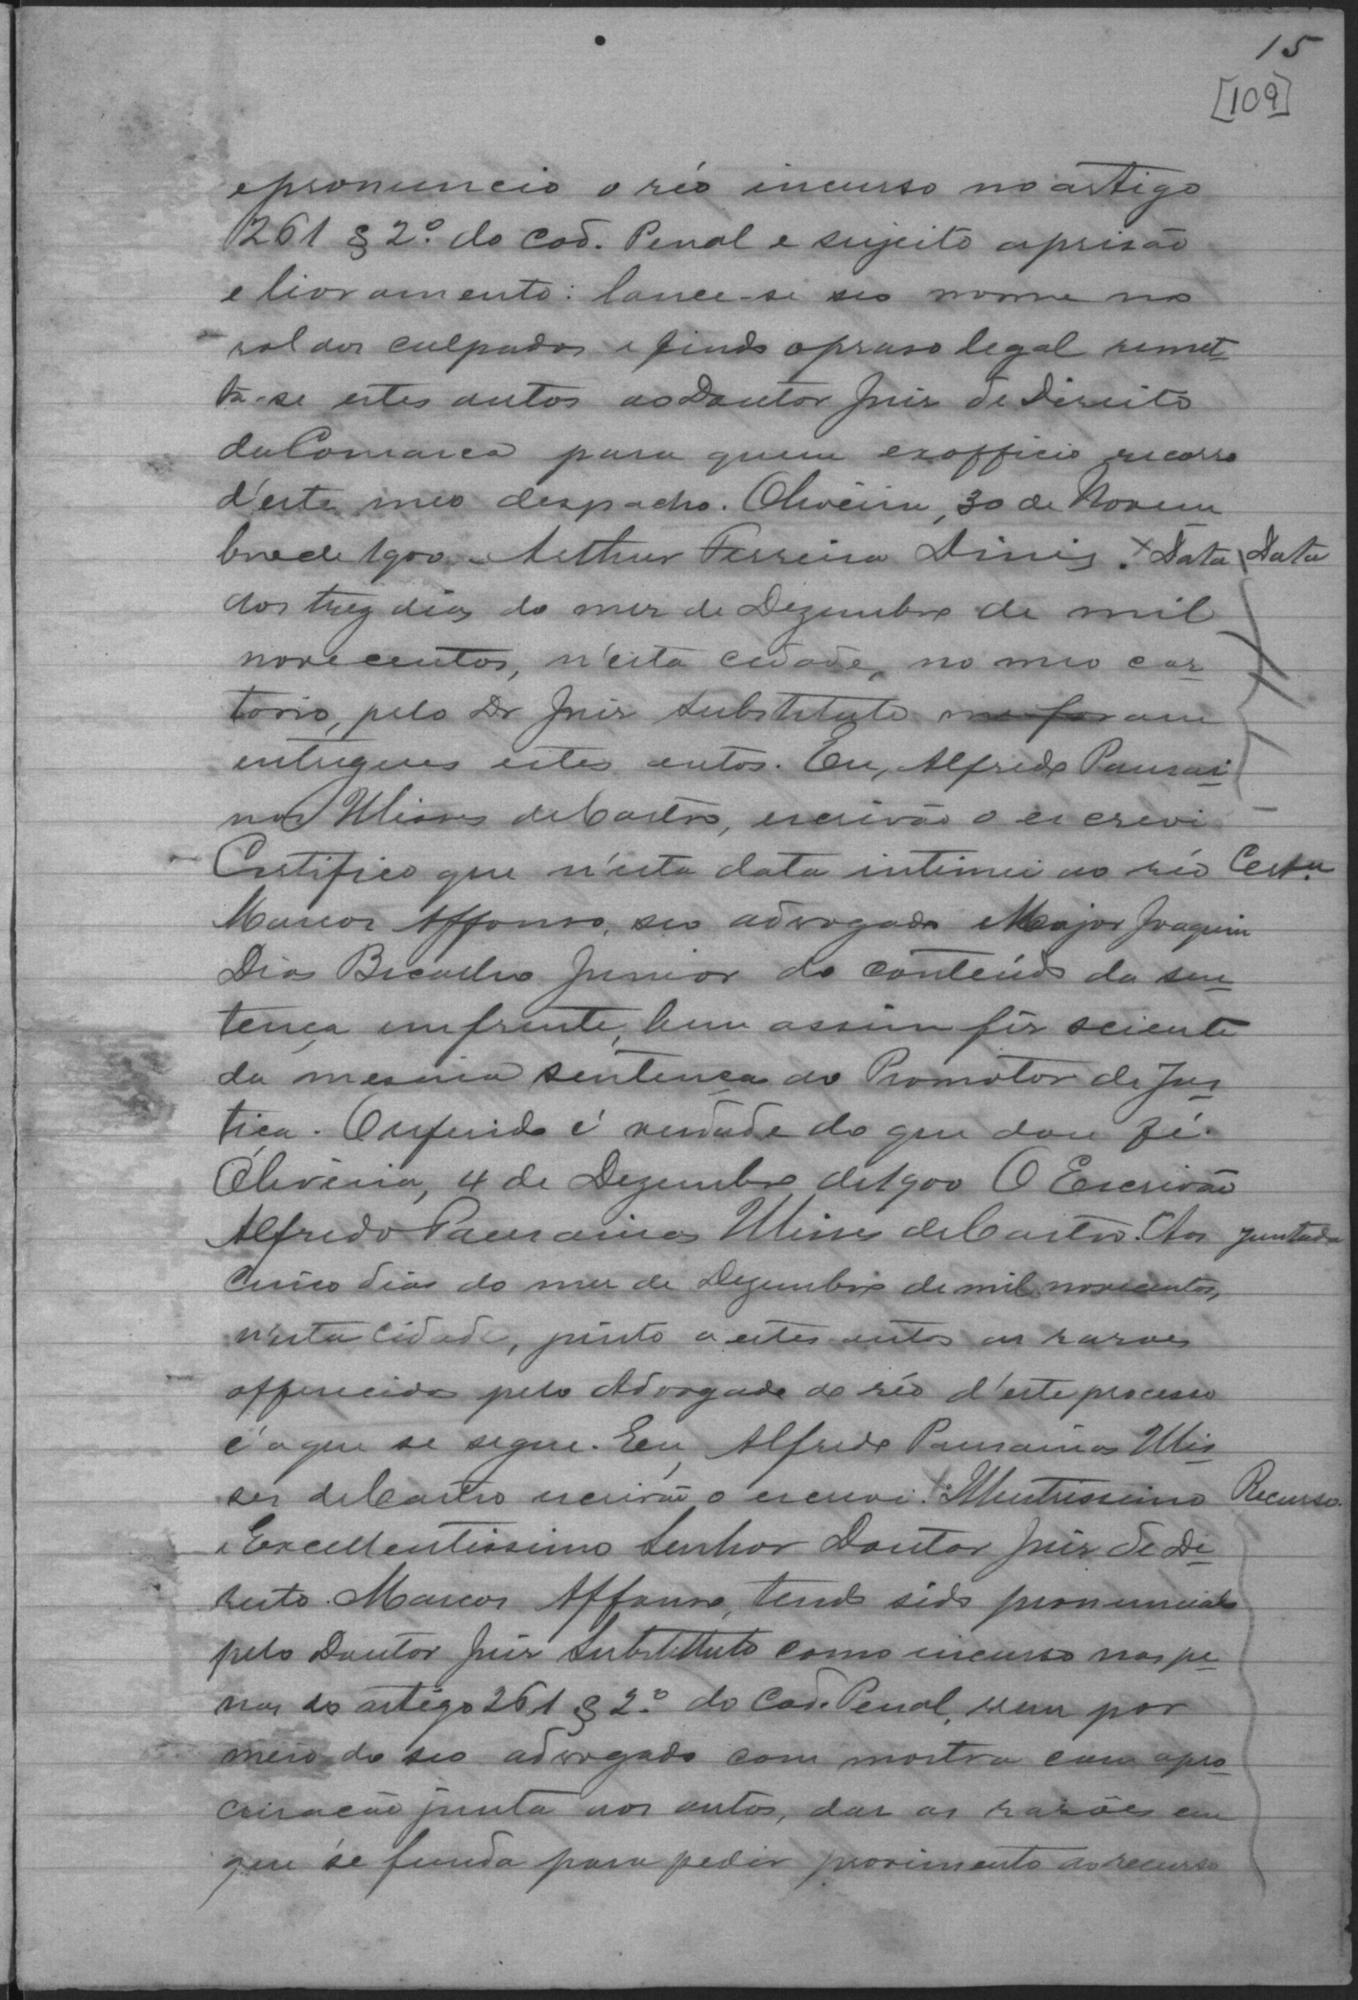 15
[109]
e pronuncio o réo incurso no artigo
261 § 2º do Cod. Penal e sujeito a prisão
e livramento: lance-se seo nome no
rol dos culpados e findo o praso legal remet-
ta-se estes autos ao Doutor Juiz de Direito
da Comarca para quem exofficio recorro
d'este meo despacho. Oliveira, 30 de Novem
bro de 1900. Arthur Ferreira Diniz. Data Data
Aos trez dias do mez de Dezembro de mil
novecentos, n'esta cidade, no meo car-
torio, pelo Dr Juiz Substituto me foram
entregues estes autos. Eu, Alfredo Pausai-
nas Ulisses de Castro, escrivão o escrevi
Certifico que n'esta data intimei ao réo Certam
Marcos Affonso, seo advogado Major Joaquim
Dias Bicalho Junior do conteúdo da sen-
tença em frente, bem assim fiz sciente
da mesma sentença ao Promotor de Jus-
tiça. O referido é verdade do que dou fé.
Oliveira, 4 de Dezembro de 1900 O Escrivão
Alfredo Pausainas Ulisses de Castro. Aos Juntada
cinco dias do mez de Dezembro de mil novecentos,
n'esta cidade, junto a estes autos as razoes
offerecidas pelo Advogado do réo d'este processo
é o que se segue. Eu, Alfredo Pausainas Ulis-
ses de Castro escrivão o escrevi. Illustrissimo Recurso.
e Excellentissimo Senhor Doutor Juiz de Di-
reito. Marcos Affonso, tendo sido pronunciado
pelo Doutor Juiz Substituto como incurso nas pe-
nas do artigo 261 § 2º do Cod. Penal, vem por
meio do seo advogado com mostra com a pro-
curação junta aos autos, dar as razões em
que se funda para pedir provimento ao recurso